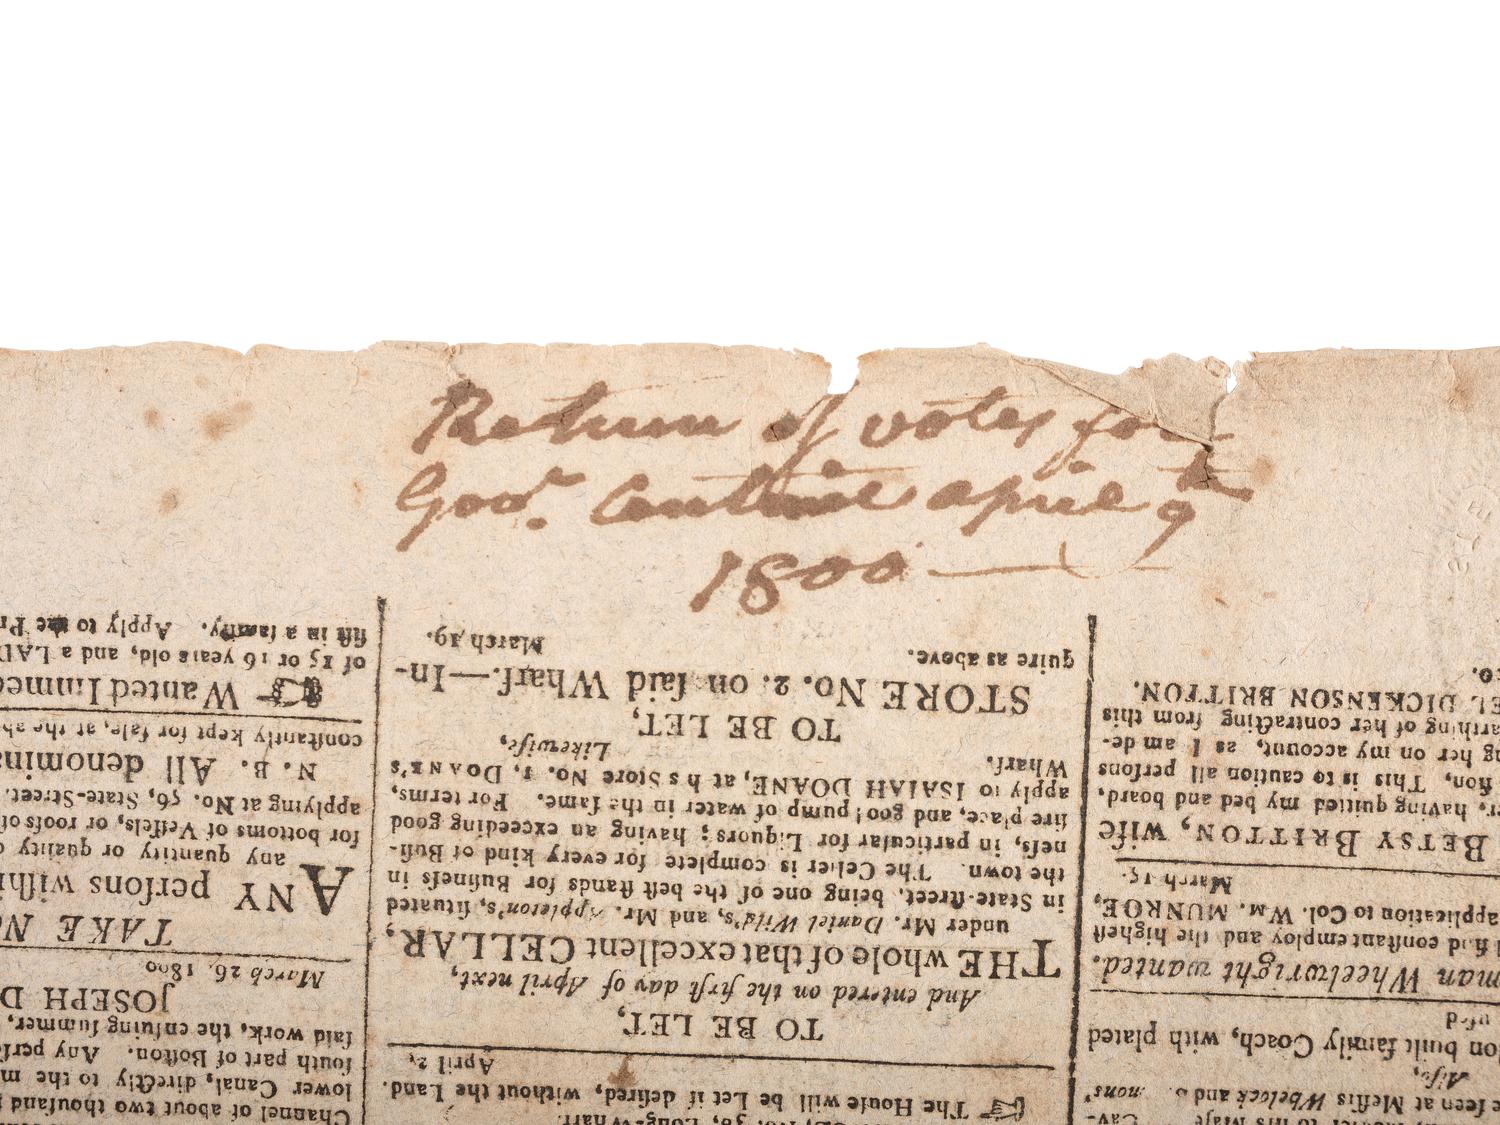 Return of votes for
Govr. Centinel april 9th
1800
on built family Coach, with plated
man Wheelwright wanted.
find conſtant employ and the higheſt
application to Col. Wm. MUNROE,
March 15.
BETSY BRITTON, wife
having quitted my bed and board,
ſion, This is to caution all perſons
her on my account, as I am de-
of her contracting from this
DICKENSON BRITTON.
☞ The Houſe will be Let if deſired, without the Land.
April 2,
TO BE LET,
And entered on the firſt day of April next,
THE whole of that excellent CELLAR,
under Mr. Daniel Wild's, and Mr. Appleton's, ſituated
in State-ſtreet, being one of the beſt ſtands for Buſineſs in
the town. The Celler is complete for every kind of Buſi-
neſs, in particular for Liquors; having an exceeding good
fire place, and good pump of water in the ſame. For terms,
apply to ISAIAH DOANE, at his Store No. 1, DOANE's
Wharf.
Likewiſe,
TO BE LET,
STORE No. 2. on ſaid Wharf.—In-
quire as above.
March 19.
Channel of about two thouſand
lower Canal, directly to the
ſouth part of Boſton. Any
ſaid work, the enſuing ſummer,
JOSEPH D
March 26. 1800
TAKE
ANY perſons
any quantity or quality
for bottoms of Veſſels, or roofs of
applying at No. 56, State-Street.
N. B. All
conſtantly kept for ſale, at the
☞ Wanted
of 15 or 16 years old, and a LAD
in a family. Apply to